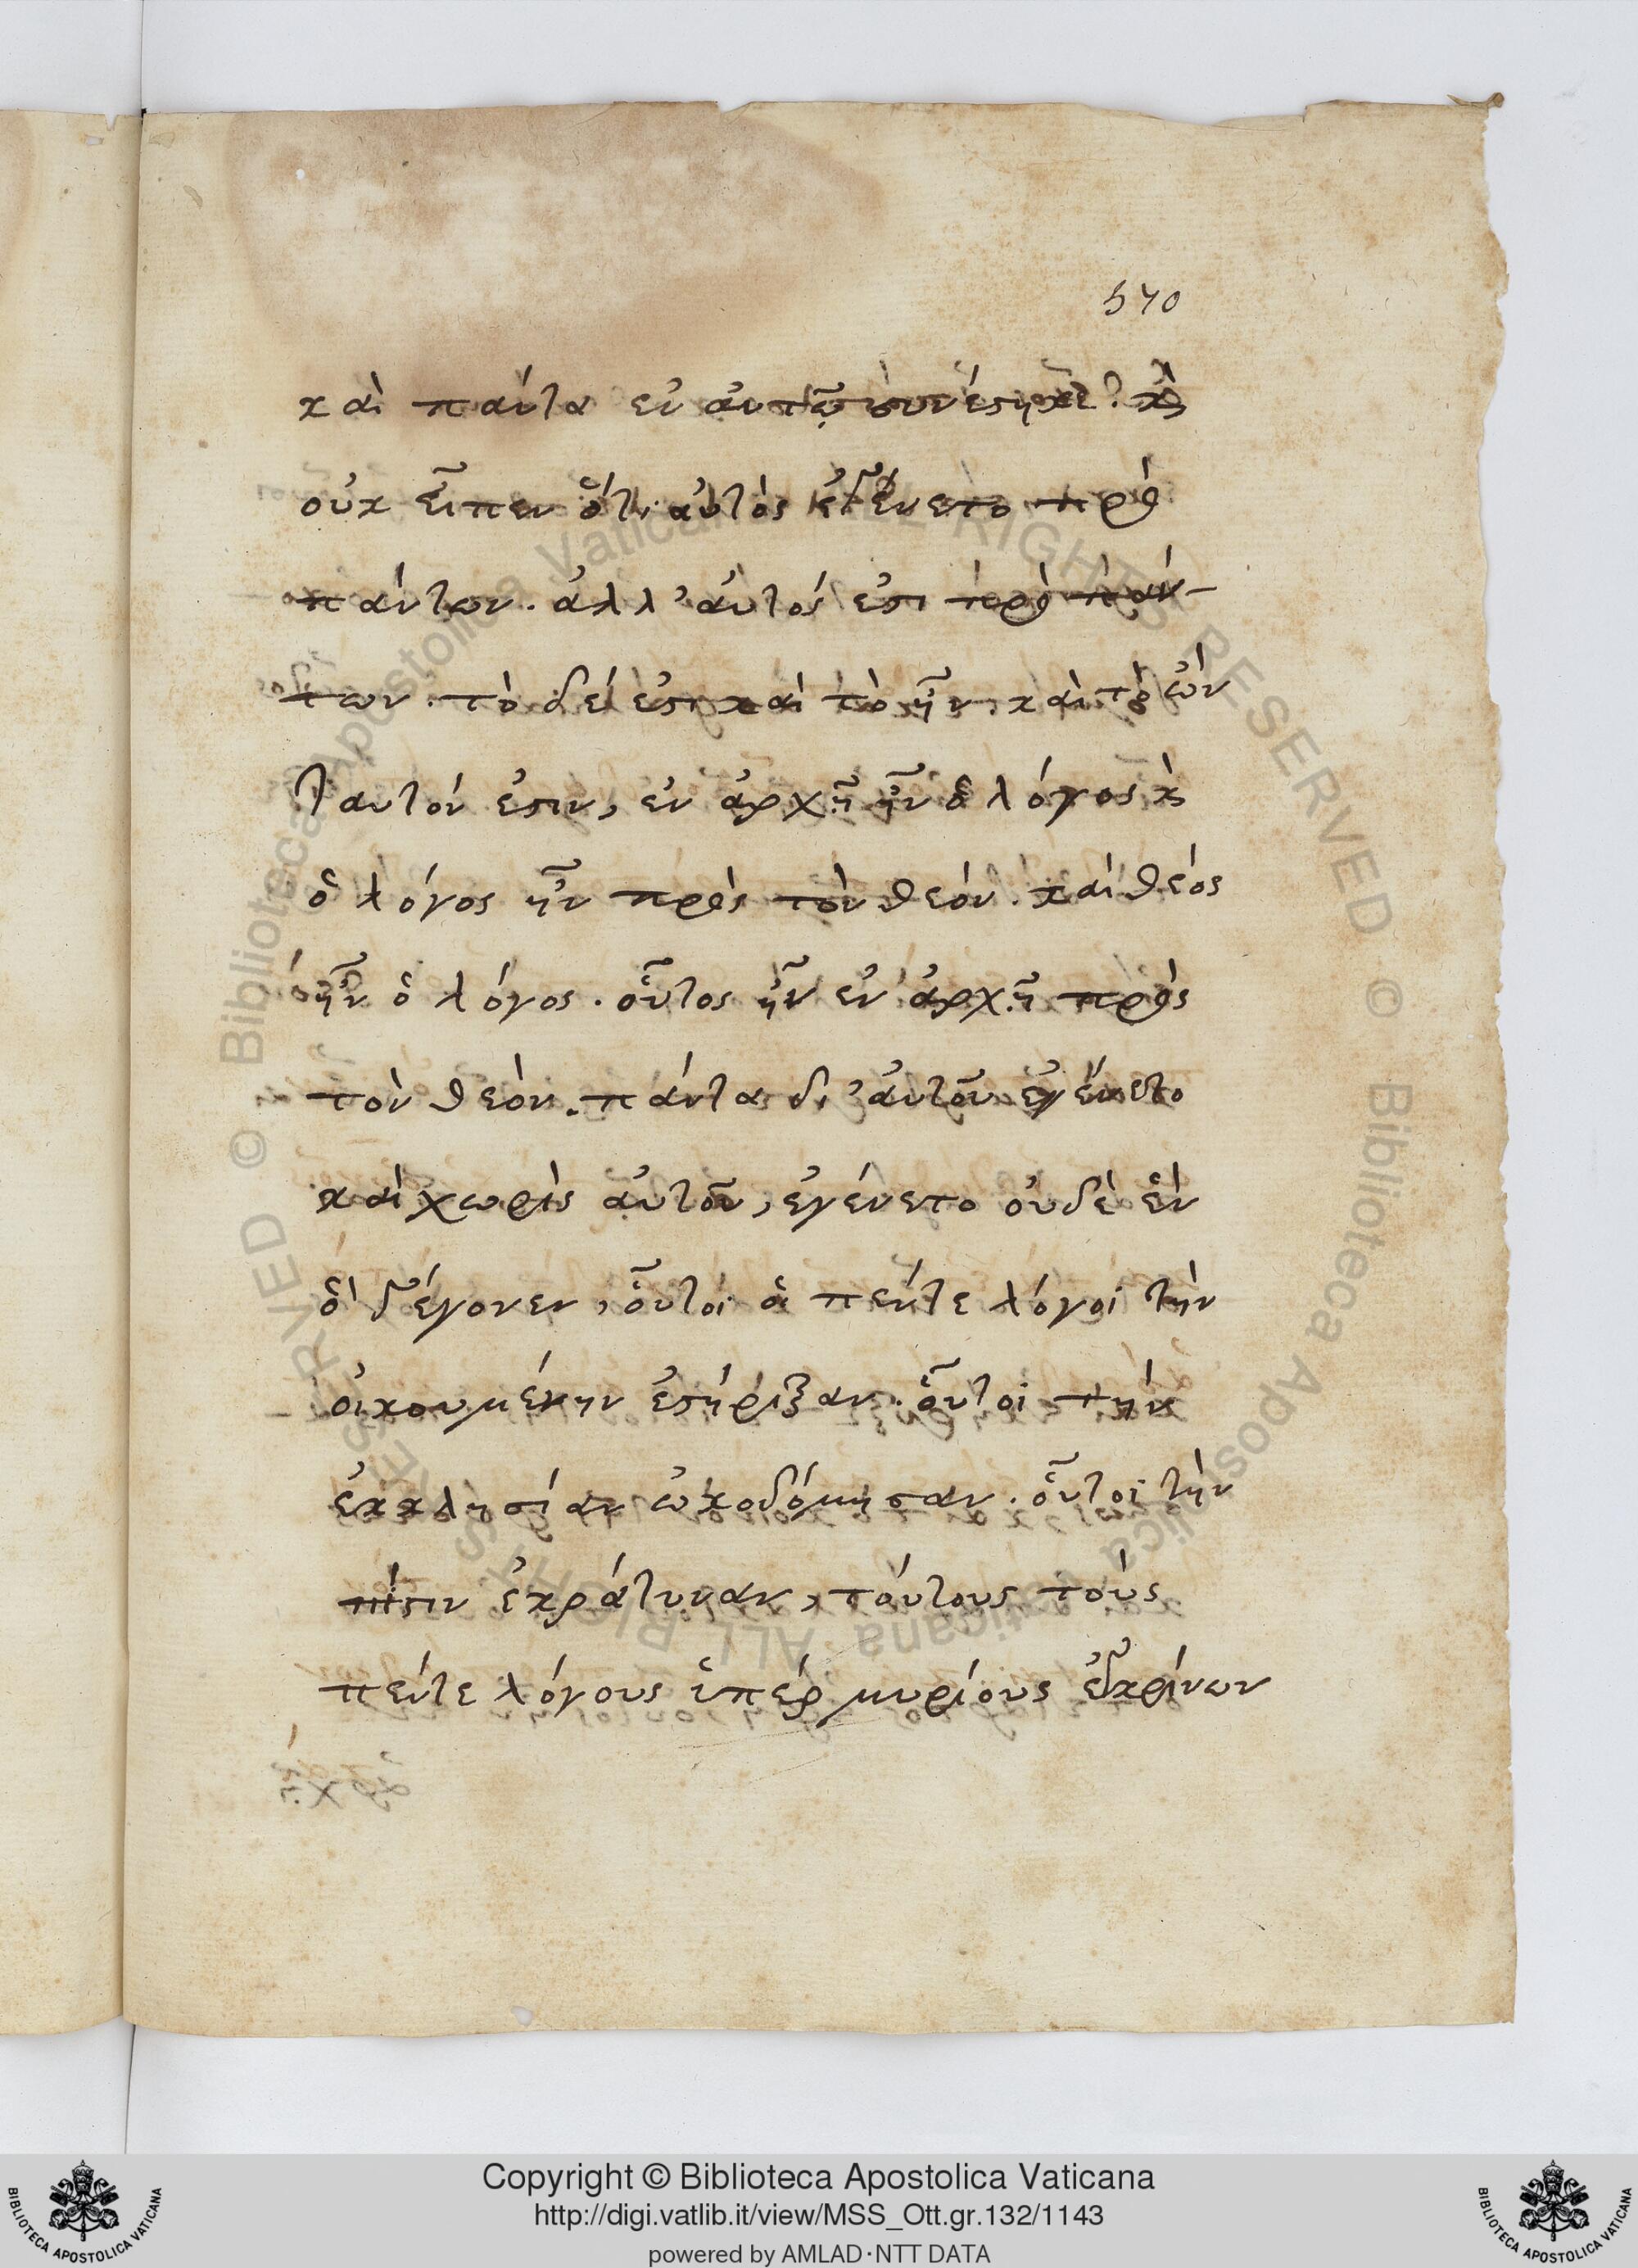 570
καὶ πάντα ἐν αὐτῷ συνέστηκε. καὶ
οὐκ εἶπεν ὅτι αὐτὸς ἐγένετο πρὸ
πάντων. ἀλλ' αὐτός ἐστι πρὸ πάν-
των. τὸ δέ ἐστι καὶ τὸ ἦν. καὶ τὸ ὢν
ταυτόν ἐστιν, ἐν ἀρχῇ ἦν ὁ λόγος κὶ
ὁ λόγος ἦν πρὸς τὸν θεόν. καὶ θεός
ἦν ὁ λόγος. οὗτος ἦν ἐν ἀρχῇ πρὸς
τὸν θεόν. πάντα δι' αὐτοῦ ἐγένετο
καὶ χωρὶς αὐτοῦ, ἐγένετο οὐδὲ ἓν
ὃ γέγονεν, οὗτοι οἱ πέντε λόγοι τὴν
οἰκουμένην ἐστήριξαν. οὗτοι τὴν
ἐκκλησίαν ὠκοδόμησαν. οὗτοι τὴν
πίστιν ἐκράτυναν, τούτους τοὺς
πέντε λόγους ὑπὲρ μυρίους ἐγκρίνων
Copyright © Biblioteca Apostolica Vaticana
http://digi.vatlib.it/view/MSS_Ott.gr.132/1143
powered by AMLAD·NTT DATA